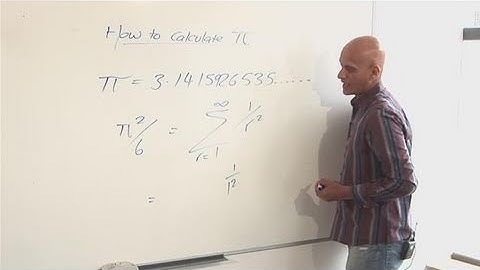 How to calculate π
π = 3.1415926535......
π²/6 = ∞ Σ r=1 1/r²
= 1/1²